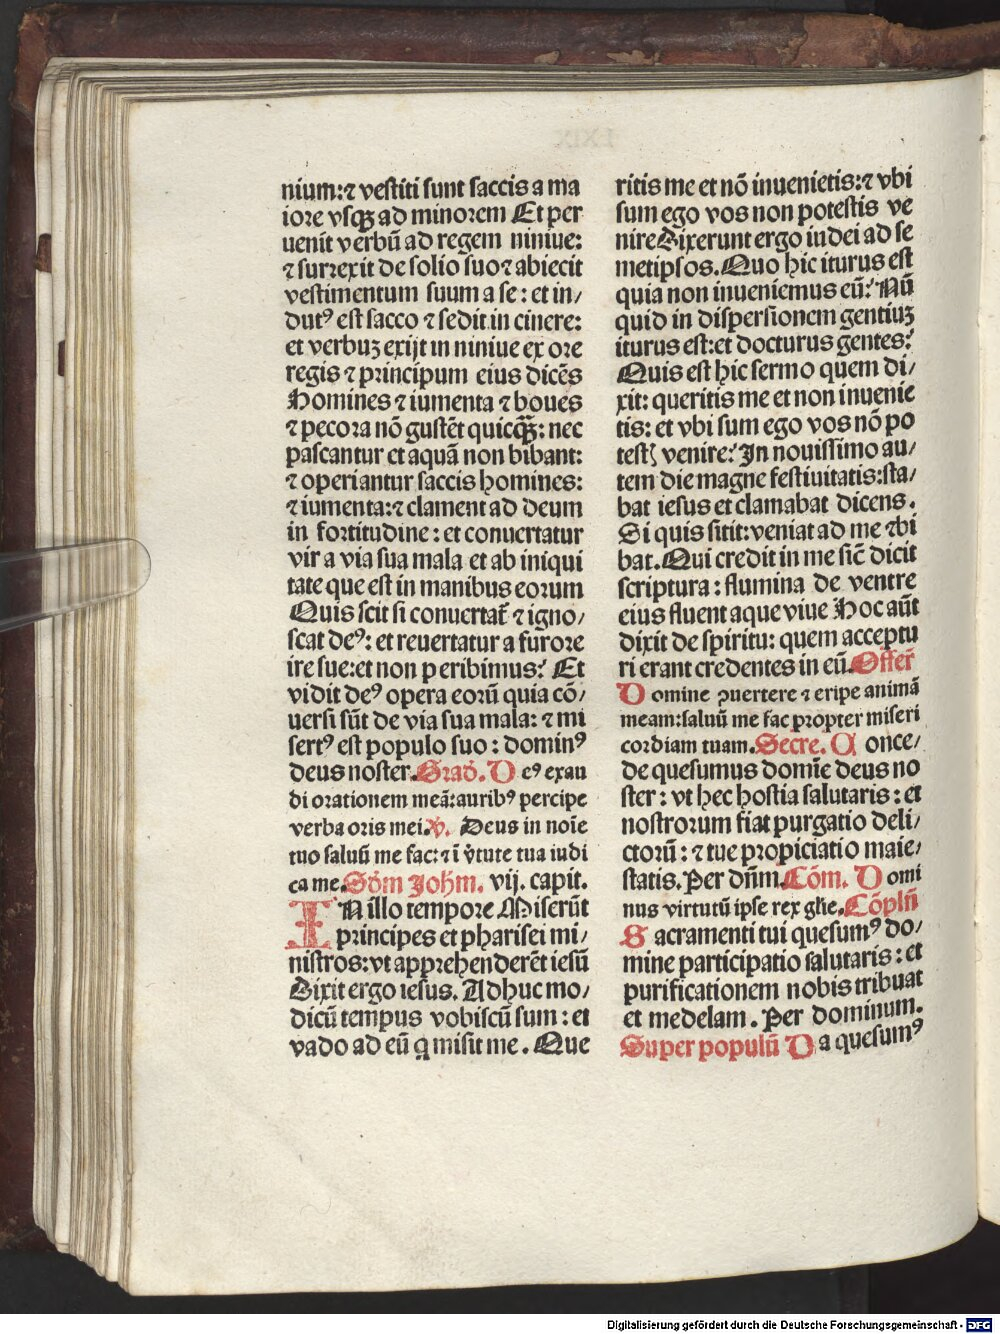 nium:⁊ vestiti sunt saccis a ma
ioꝛe vsqꝫ ad minoꝛem Et per
uenit verbū ad regem niniue:
⁊ surrexit de solio suo⁊ abiecit
vestimentum suum a se : et in/
dutꝰ est sacco ⁊ sedit in cinere:
et verbuꝫ exijt in niniue ex oꝛe
regis ⁊ pꝛincipum eius dicēs
Homines ⁊ iumenta ⁊ boues
⁊ pecoꝛa nō gustēt quicq̄ꝫ: nec
pascantur et aquā non bibant:
⁊ operiantur saccis homines:
⁊ iumenta:⁊ clament ad deum
in foꝛtitudine : et conuertatur
vir a via sua mala et ab iniqui
tate que est in manibus eoꝛum
Quis scit si conuertat̄ ⁊ igno/
scat deꝰ: et reuertatur a furoꝛe
ire sue:et non peribimus? Et
vidit deꝰ opera eoꝛū quia cō/
uersi sūt de via sua mala: ⁊ mi
sertꝰ est populo suo : dominꝰ
deus noster. Grad. D eꝰ exau
di oꝛationem meā:auribꝰ percipe
verba oꝛis mei. V. Deus in noīe
tuo saluū me fac: ⁊ ī v̄tute tua iudi
ca me. Scd̄m Johm. vij. capit.
IN illo tempoꝛe Miserūt
pꝛincipes et pharisei mi/
nistros: vt appꝛehenderēt iesū
Dixit ergo iesus. Adhuc mo/
dicū tempus vobiscū sum : et
vado ad eū q̄ misit me. Que
ritis me et nō inuenietis:⁊ vbi
sum ego vos non potestis ve
nire Dixerunt ergo iudei ad se
metipsos. Quo hic iturus est
quia non inueniemus eū? Nū
quid in dispersionem gentiuꝫ
iturus est:et docturus gentes?
Quis est hic sermo quem di/
xit: queritis me et non inuenie
tis: et vbi sum ego vos nō po
testꝭ venire? In nouissimo au/
tem die magne festiuitatis:sta/
bat iesus et clamabat dicens.
Si quis sitit:veniat ad me ⁊bi
bat. Qui credit in me sic̄ dicit
scriptura : flumina de ventre
eius fluent aque viue Hoc aūt
dixit de spiritu: quem acceptu
ri erant credentes in eū. Offer̄
D omine ꝯuertere ⁊ eripe animā
meam:saluū me fac pꝛopter miseri
coꝛdiam tuam. Secre. C once/
de quesumus domīe deus no
ster : vt hec hostia salutaris : et
nostroꝛum fiat purgatio deli/
ctoꝛū : ⁊ tue pꝛopiciatio maie/
statis. Per dn̄m. Cōm. D omi
nus virtutū ipse rex gl̄ie. Cōpl̄n
S acramenti tui quesumꝰ do/
mine participatio salutaris : et
purificationem nobis tribuat
et medelam. Per dominum.
Super populū D a quesumꝰ
Digitalisierung gefördert durch die Deutsche Forschungsgemeinschaft - DFG